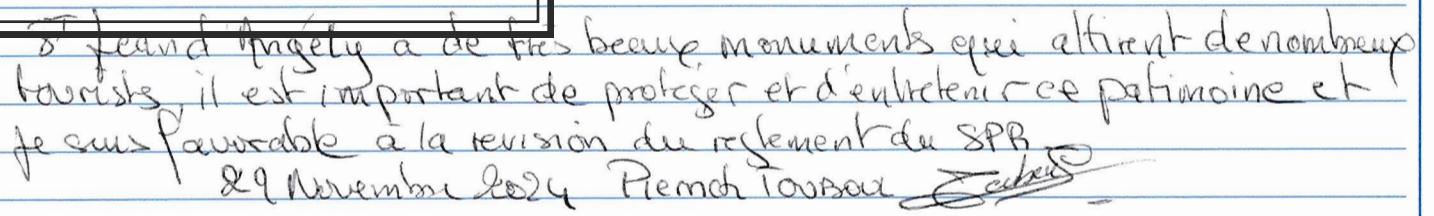 St Jean d'Angély a de très beaux monuments qui attirent de nombreux
tourists, il est important de protéger et d'entretenir ce patimoine et
je suis favorable à la revision du reglement du SPR
29 Novembre 2024